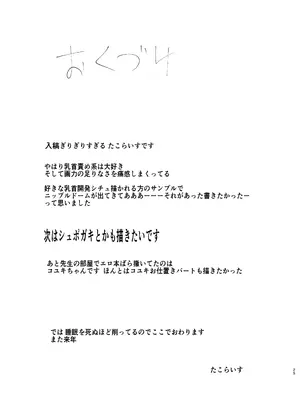 おくづけ
入稿ぎりぎりすぎる たこらいすです
やはり乳首責め系は大好き
そして画力の足りなさを痛感しまくってる
好きな乳首開発シチュ描かれる方のサンプルで
ニップルドームが出てきてあああーーーそれがあった書きたかったー
って思いました
次はシュポガキとかも描きたいです
あと先生の部屋でエロ本ばら撒いてたのは
コユキちゃんです ほんとはコユキお仕置きパートも描きたかった
では 睡眠を死ぬほど削ってるのでここでおわります
また来年
たこらいす